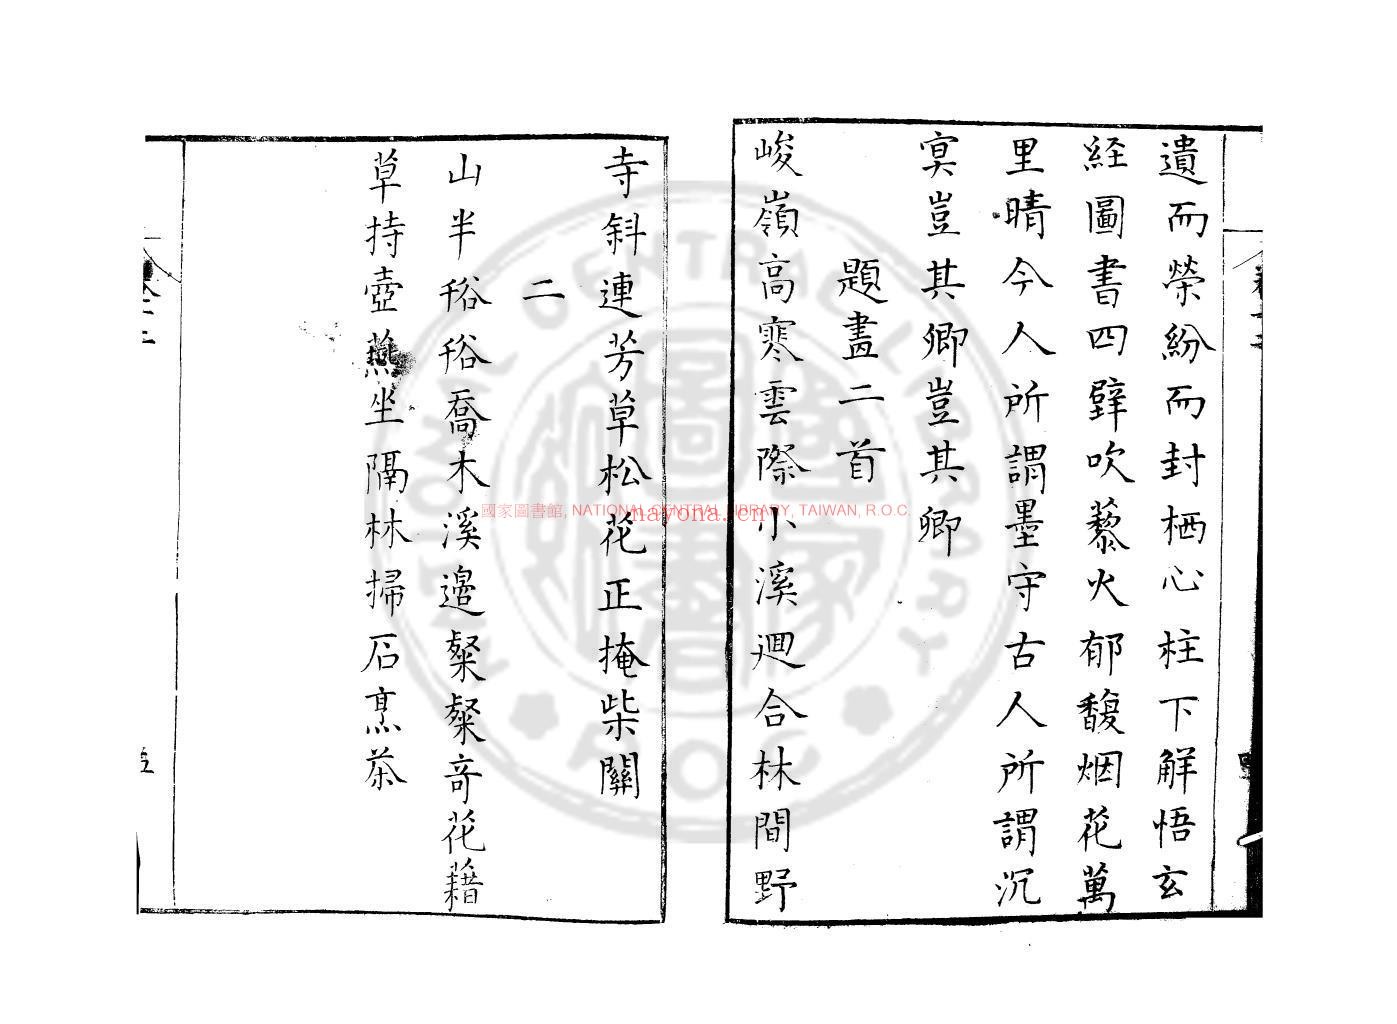 遺而榮紛而封栖心柱下解悟玄
経圖書四壁吹藜火郁馥烟花萬
里晴今人所謂墨守古人所謂沉
㝠豈其卿豈其卿
題畫二首
峻嶺高寒雲際小溪迴合林間野
寺斜連芳草松花正掩柴關
二
山半谺谺喬木溪邉粲粲奇花藉
草持壺燕坐隔林掃石烹茶
國家圖書館, NATIONAL CENTRAL LIBRARY, TAIWAN, R.O.C
nayona.cn
NATIONAL CENTRAL LIBRARY
R.O.C